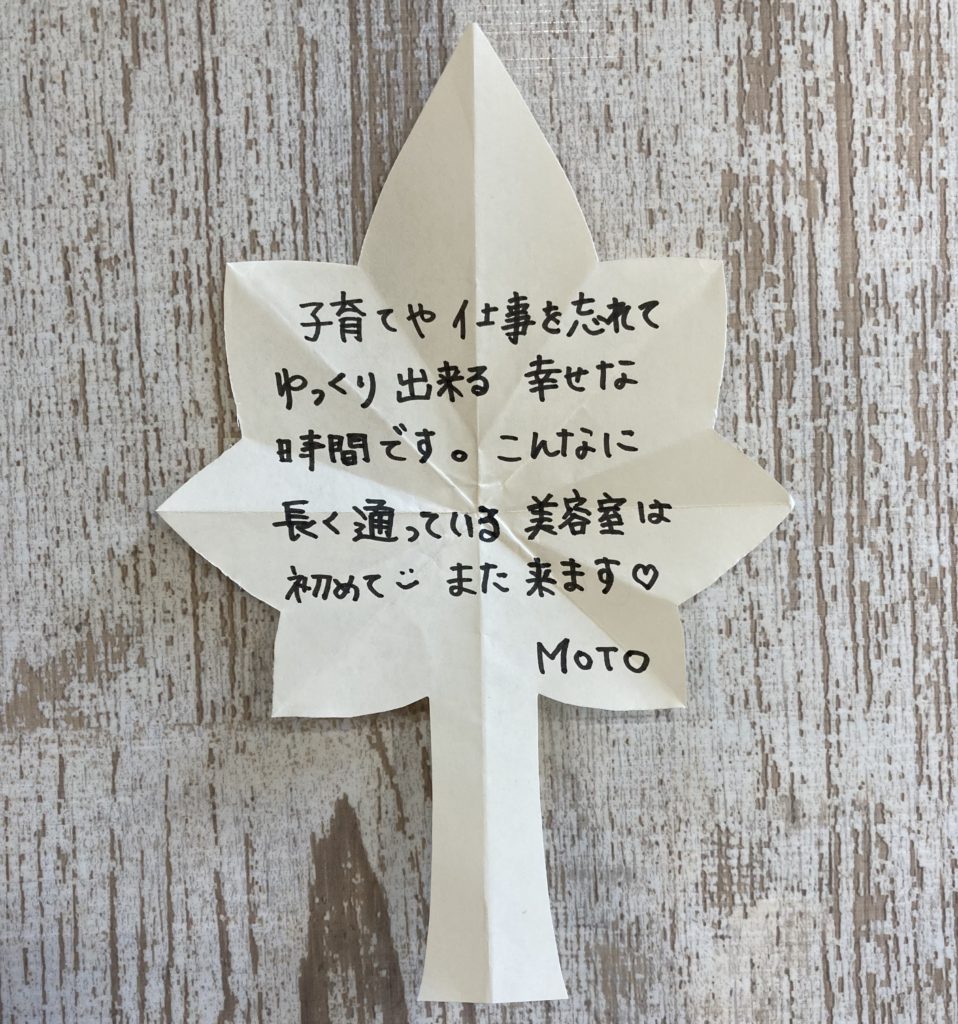 子育てや仕事を忘れて
ゆっくり出来る 幸せな
時間です。こんなに
長く通っている美容室は
初めて☺ また来ます♡
MOTO